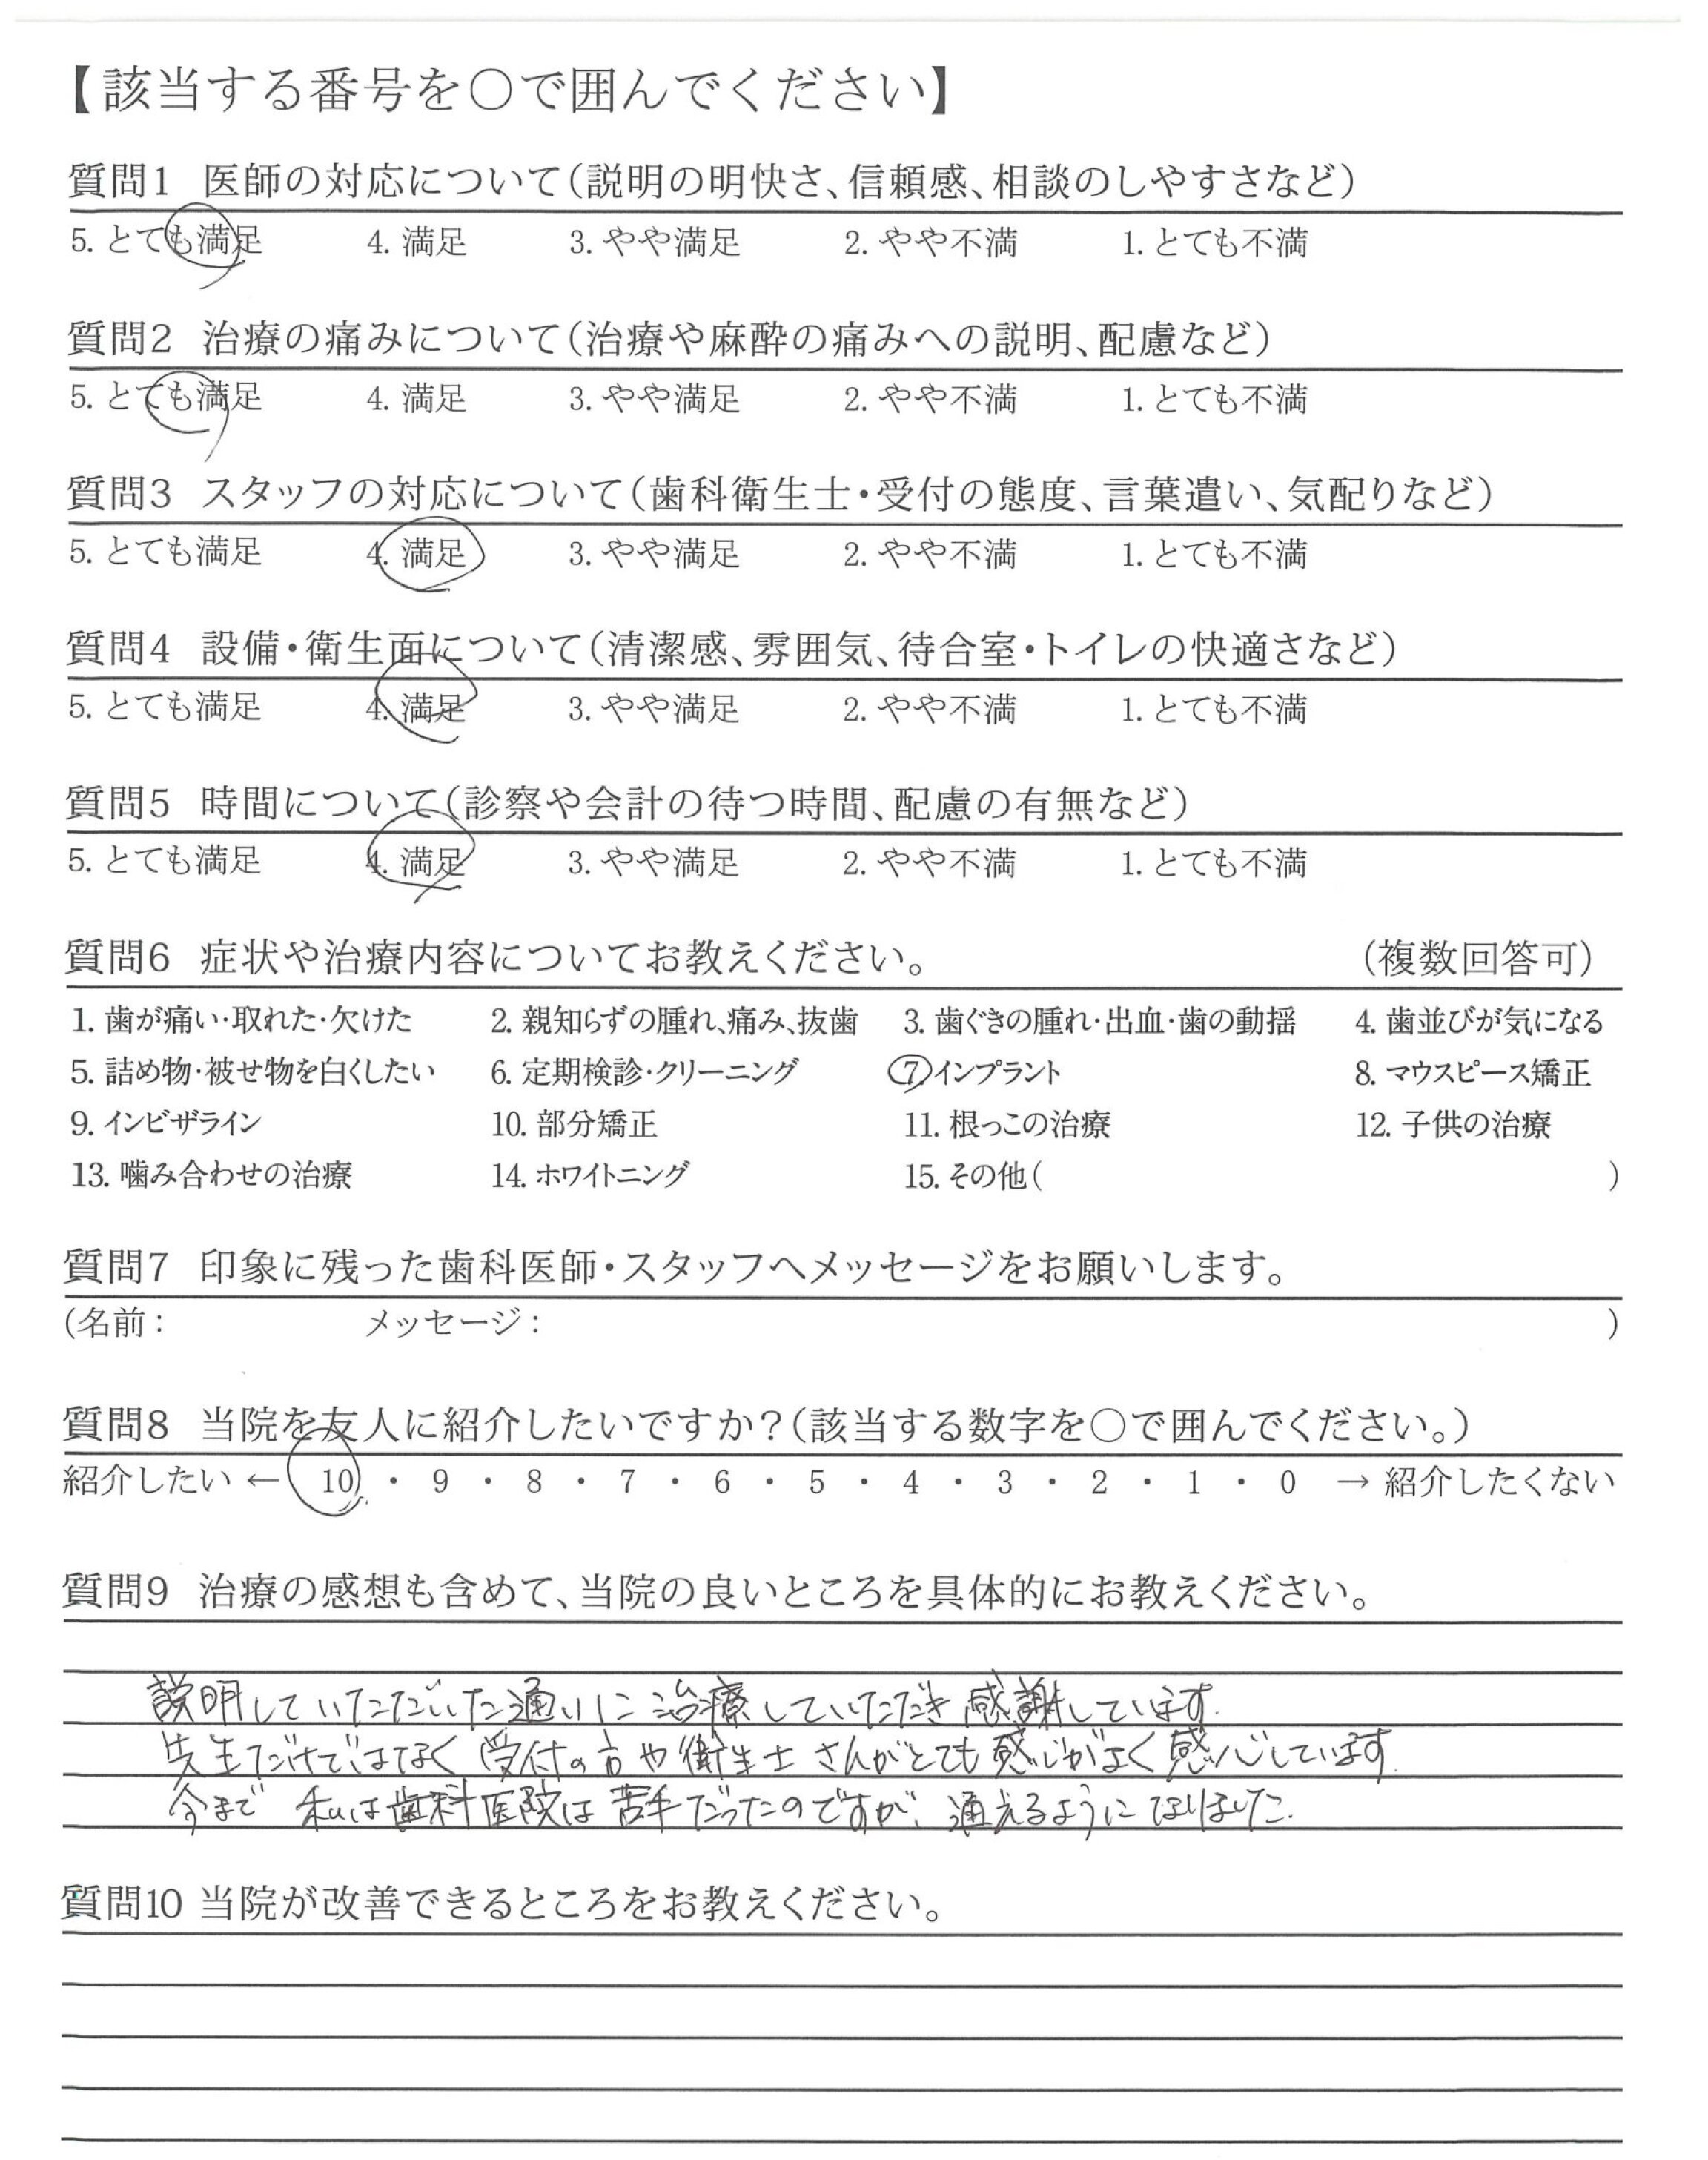 【該当する番号を〇で囲んでください】
質問1 医師の対応について(説明の明快さ、信頼感、相談のしやすさなど)
5. とても満足 4. 満足 3. やや満足 2. やや不満 1. とても不満
質問2 治療の痛みについて(治療や麻酔の痛みへの説明、配慮など)
5. とても満足 4. 満足 3. やや満足 2. やや不満 1. とても不満
質問3 スタッフの対応について(歯科衛生士・受付の態度、言葉遣い、気配りなど)
5. とても満足 4. 満足 3. やや満足 2. やや不満 1. とても不満
質問4 設備・衛生面について(清潔感、雰囲気、待合室・トイレの快適さなど)
5. とても満足 4. 満足 3. やや満足 2. やや不満 1. とても不満
質問5 時間について(診察や会計の待つ時間、配慮の有無など)
5. とても満足 4. 満足 3. やや満足 2. やや不満 1. とても不満
質問6 症状や治療内容についてお教えください。 (複数回答可)
1. 歯が痛い・取れた・欠けた 2. 親知らずの腫れ、痛み、抜歯 3. 歯ぐきの腫れ・出血・歯の動揺 4. 歯並びが気になる
5. 詰め物・被せ物を白くしたい 6. 定期検診・クリーニング 7. インプラント 8. マウスピース矯正
9. インビザライン 10. 部分矯正 11. 根っこの治療 12. 子供の治療
13. 噛み合わせの治療 14. ホワイトニング 15. その他( )
質問7 印象に残った歯科医師・スタッフへメッセージをお願いします。
(名前: メッセージ: )
質問8 当院を友人に紹介したいですか?(該当する数字を〇で囲んでください。)
紹介したい ← 10 ・ 9 ・ 8 ・ 7 ・ 6 ・ 5 ・ 4 ・ 3 ・ 2 ・ 1 ・ 0 → 紹介したくない
質問9 治療の感想も含めて、当院の良いところを具体的にお教えください。
説明していただいた通りに治療していただき感謝しています.
先生だけではなく受付の方や衛生士さんがとても感じがよく感心しています.
今まで 私は歯科医院は苦手だったのですが、通えるようになりました.
質問10 当院が改善できるところをお教えください。